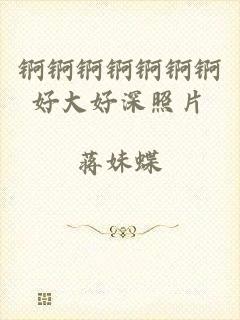 锕锕锕锕锕锕锕
好大好深照片
蒋妹蝶